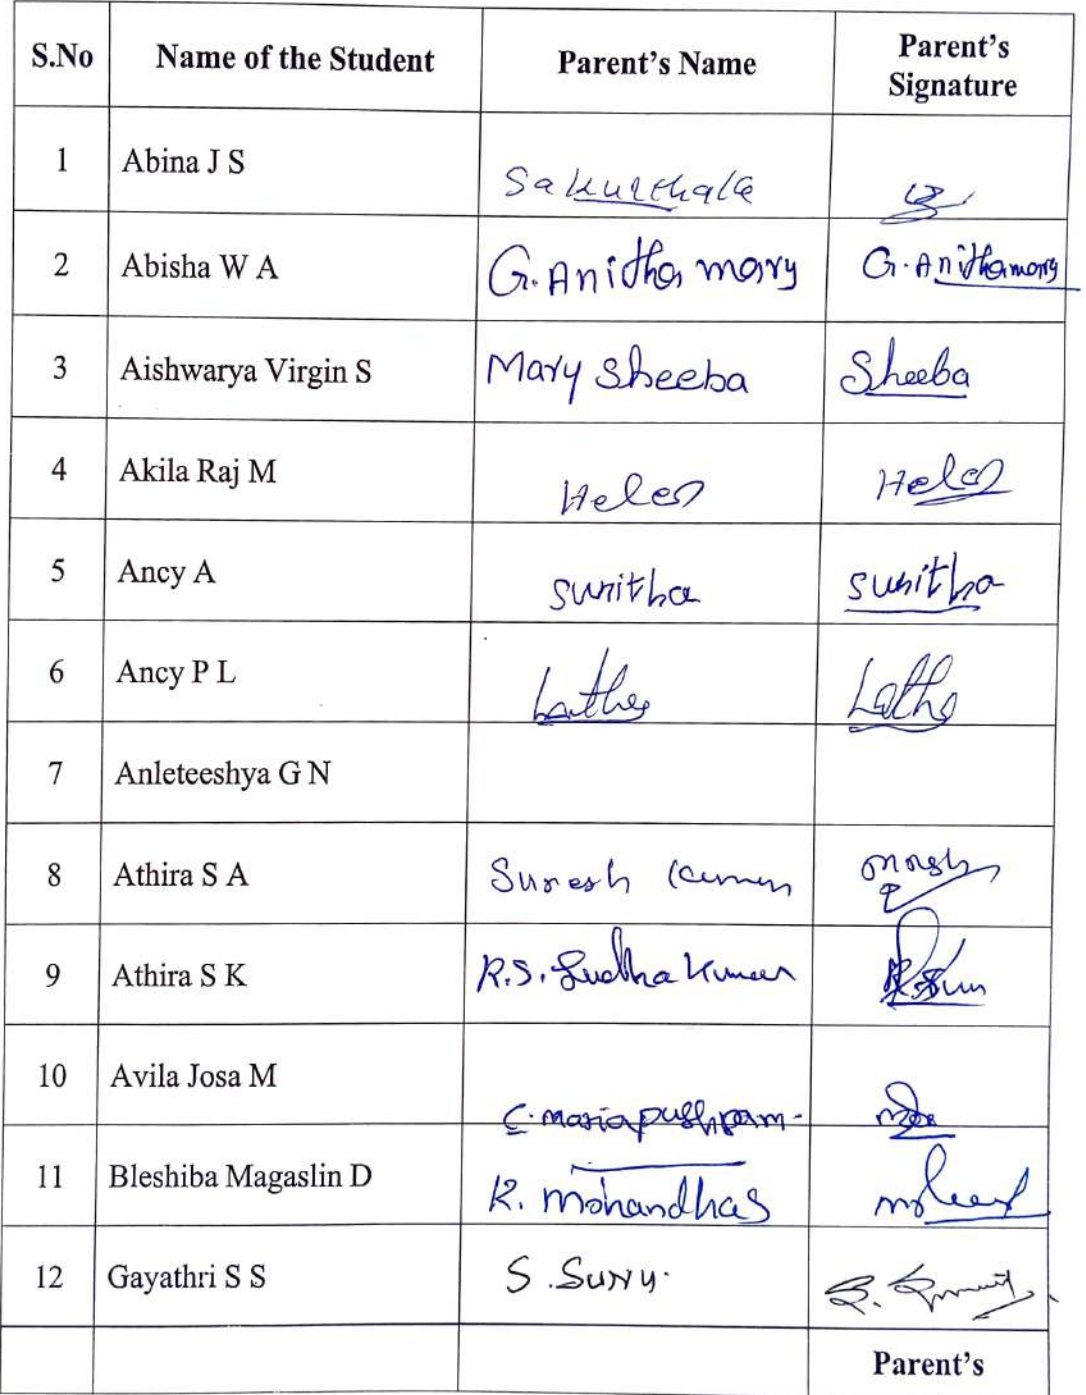 S.No Name of the Student Parent's Name Parent's Signature
1 Abina J S Sakunthala
2 Abisha W A G. Anitha mary G. Anithamary
3 Aishwarya Virgin S Mary Sheeba Sheeba
4 Akila Raj M Helen Helen
5 Ancy A Sunitha Sunitha
6 Ancy P L Latha Latha
7 Anleteeshya G N
8 Athira S A Suresh Kumar
9 Athira S K R.S. Sudha Kumar
10 Avila Josa M C. mariapushpam
11 Bleshiba Magaslin D K. Mohandhas
12 Gayathri S S S. Suny.
Parent's